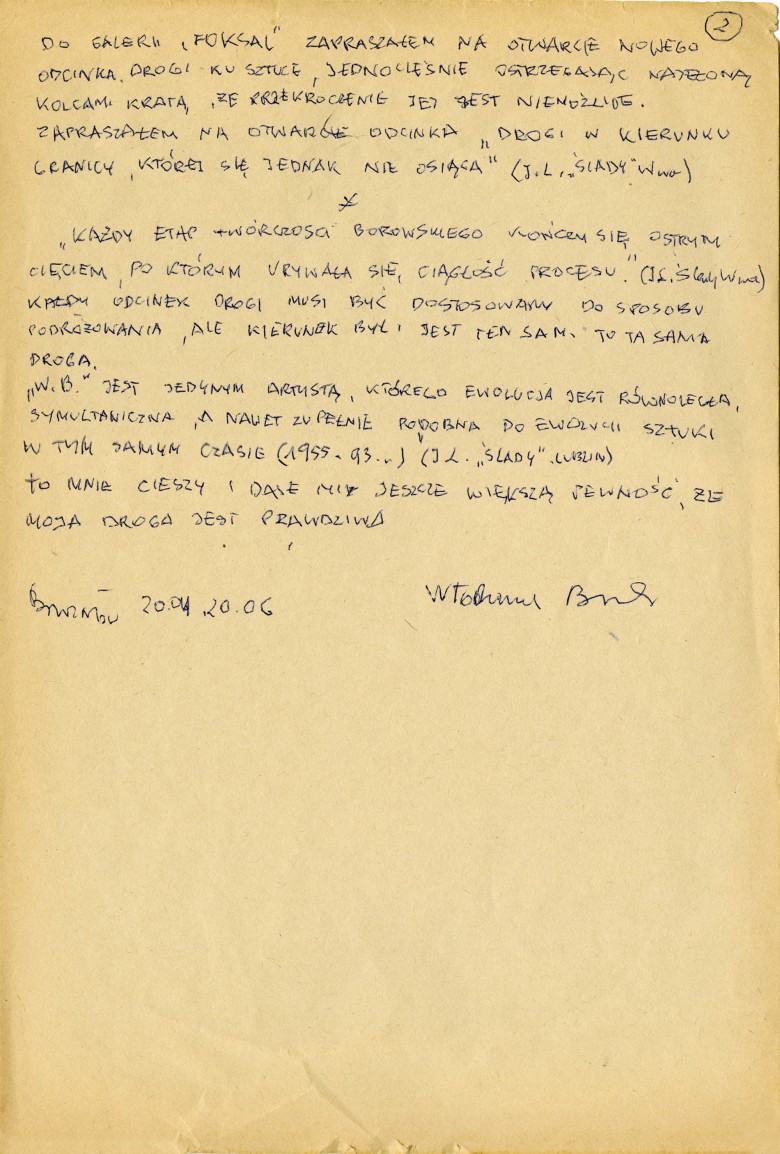 2
DO GALERII "FOKSAL" ZAPRASZAŁEM NA OTWARCIE NOWEGO
ODCINKA DROGI KU SZTUCE, JEDNOCZEŚNIE OSTRZEGAJĄC NAJEŻONĄ
KOLCAMI KRATĄ, ŻE PRZEKROCZENIE JEJ JEST NIEMOŻLIWE.
ZAPRASZAŁEM NA OTWARCIE ODCINKA "DROGI W KIERUNKU
GRANICY, KTÓREJ SIĘ JEDNAK NIE OSIĄGA" (J.L. "ŚLADY" Wwa)
*
"KAŻDY ETAP TWÓRCZOŚCI BOROWSKIEGO KOŃCZY SIĘ OSTRYM
CIĘCIEM, PO KTÓRYM URYWAŁA SIĘ CIĄGŁOŚĆ PROCESU." (J.L. Ślady Wwa)
KAŻDY ODCINEK DROGI MUSI BYĆ DOSTOSOWANY DO SPOSOBU
PODRÓŻOWANIA, ALE KIERUNEK BYŁ I JEST TEN SAM. TO TA SAMA
DROGA.
"W.B." JEST JEDYNYM ARTYSTĄ, KTÓREGO EWOLUCJA JEST RÓWNOLEGŁA,
SYMULTANICZNA, A NAWET ZUPEŁNIE PODOBNA DO EWOLUCJI SZTUKI
W TYM SAMYM CZASIE (1955-93..) (J.L. "ŚLADY" LUBLIN)
TO MNIE CIESZY I DAJE MI JESZCZE WIĘKSZĄ PEWNOŚĆ, ŻE
MOJA DROGA JEST PRAWDZIWA
20.04 20.06